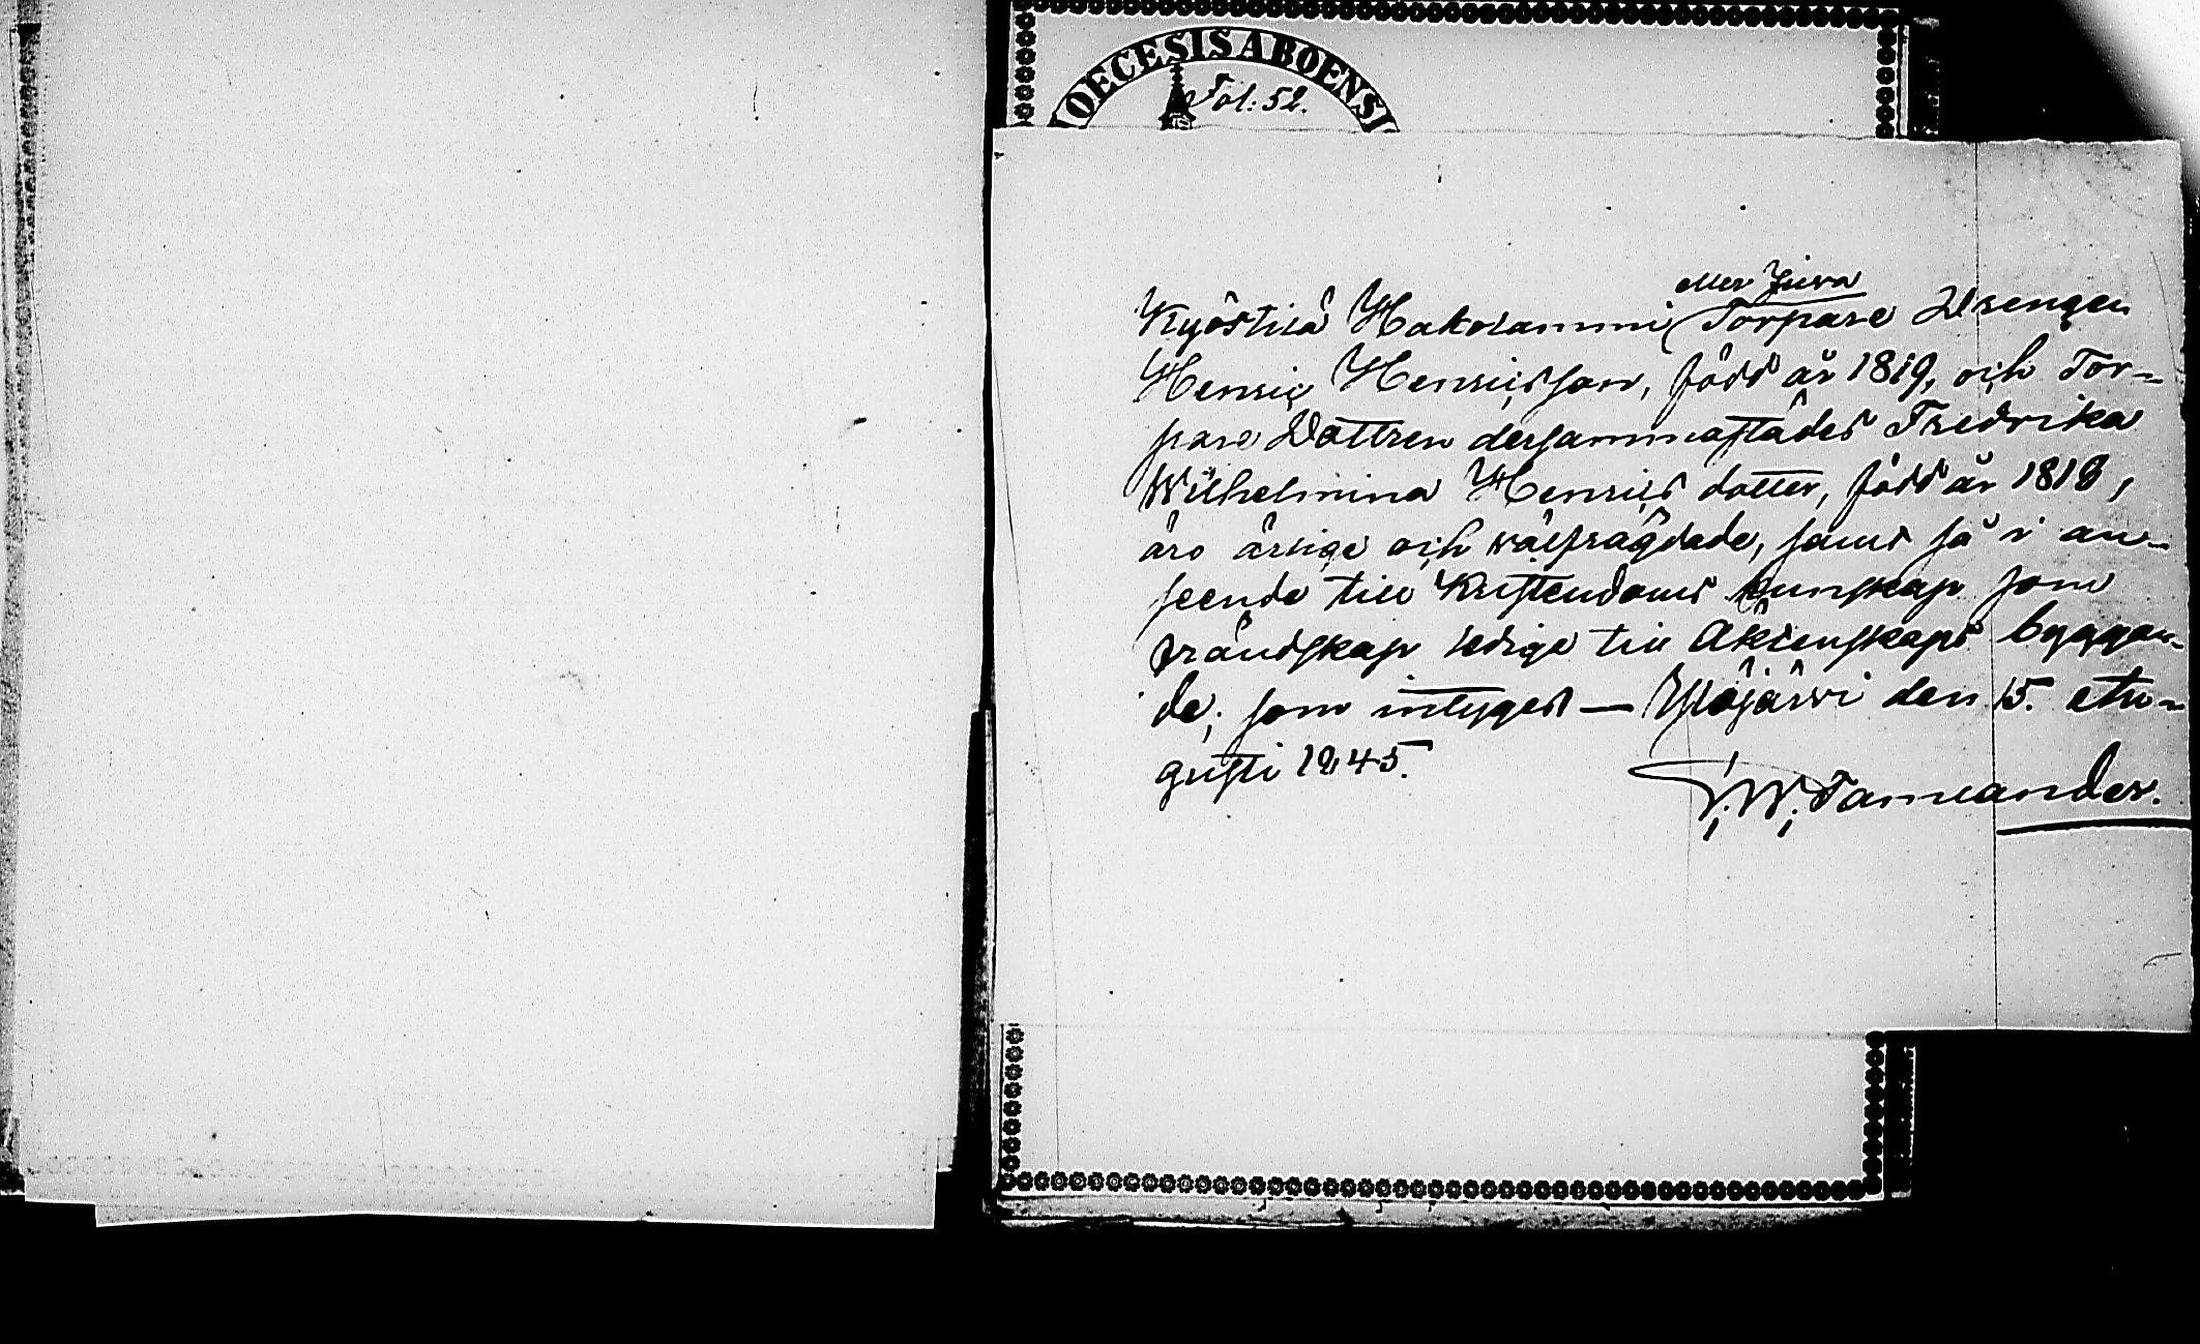 OECESIS ABOENSI
Fol: 52.
eller Juva
Kyöstilä Hakolammi Torpare Drengen
Henric Henricsson, född år 1819, och Tor-
pare Dottren dersammastädes Fredrika
Wilhelmina Henrics dotter, född år 1818,
äro ärlige och wälfrägdade, samt så i an-
seende till Kristendoms kunskap som
frändskap ledige till Äktenskaps byggan-
de; som intygas — Ylöjärvi den 15. Au-
gusti 1845.
Tamlander.